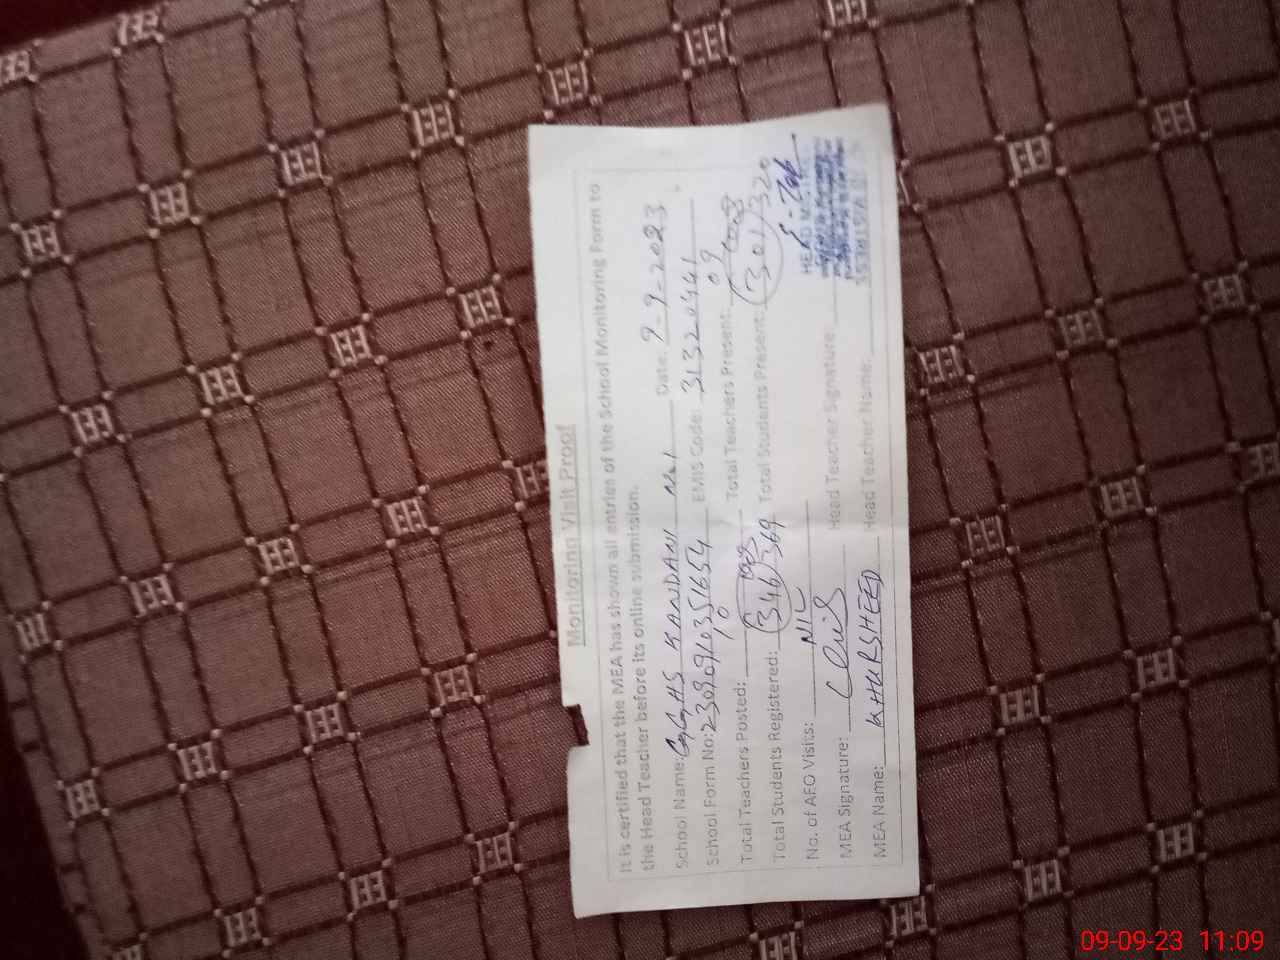 Monitoring Visit Proof
It is certified that the MEA has shown all entries of the School Monitoring Form to
the Head Teacher before its online submission.
School Name: GGHS KANDANI No.1 Date: 9-9-2023
School Form No: 23090910351654 EMIS Code: 31320441
Total Teachers Posted: 10 Total Teachers Present: 09
Total Students Registered: 346 369 Total Students Present: 301 320
No. of AEO Visits: NIL
MEA Signature: Head Teacher Signature:
MEA Name: KHURSHEED Head Teacher Name:
09-09-23 11:09